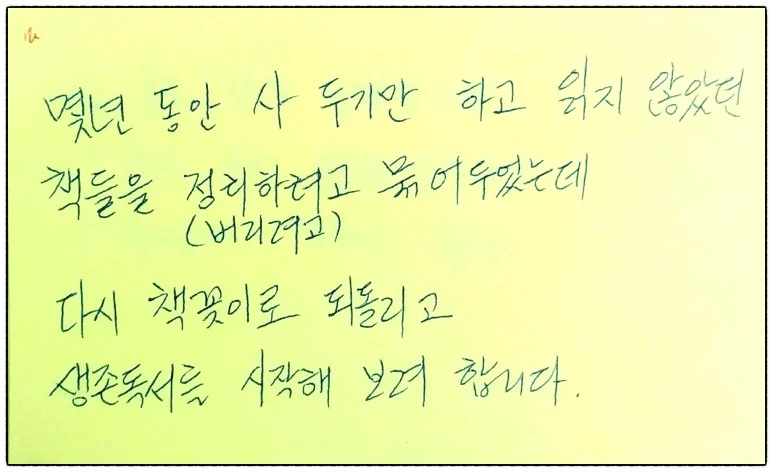 몇년 동안 사 두기만 하고 읽지 않았던
책들을 정리하려고 묶어두었는데
(버리려고)
다시 책꽂이로 되돌리고
생존독서를 시작해 보려 합니다.